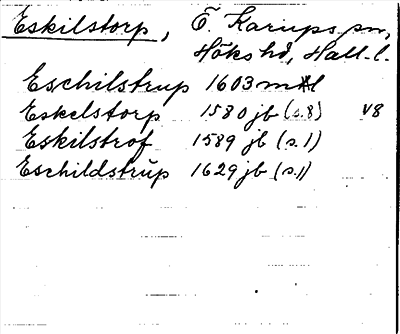 Eskilstorp, Ö. Karups sn,
Höks hd, Hall. l.
Eschilstrup 1603 mtl
Eskelstorp 1580 jb (s. 8) v8
Eskilstrof 1589 jb (s. 1)
Eschildstrŭp 1629 jb (s. 1)